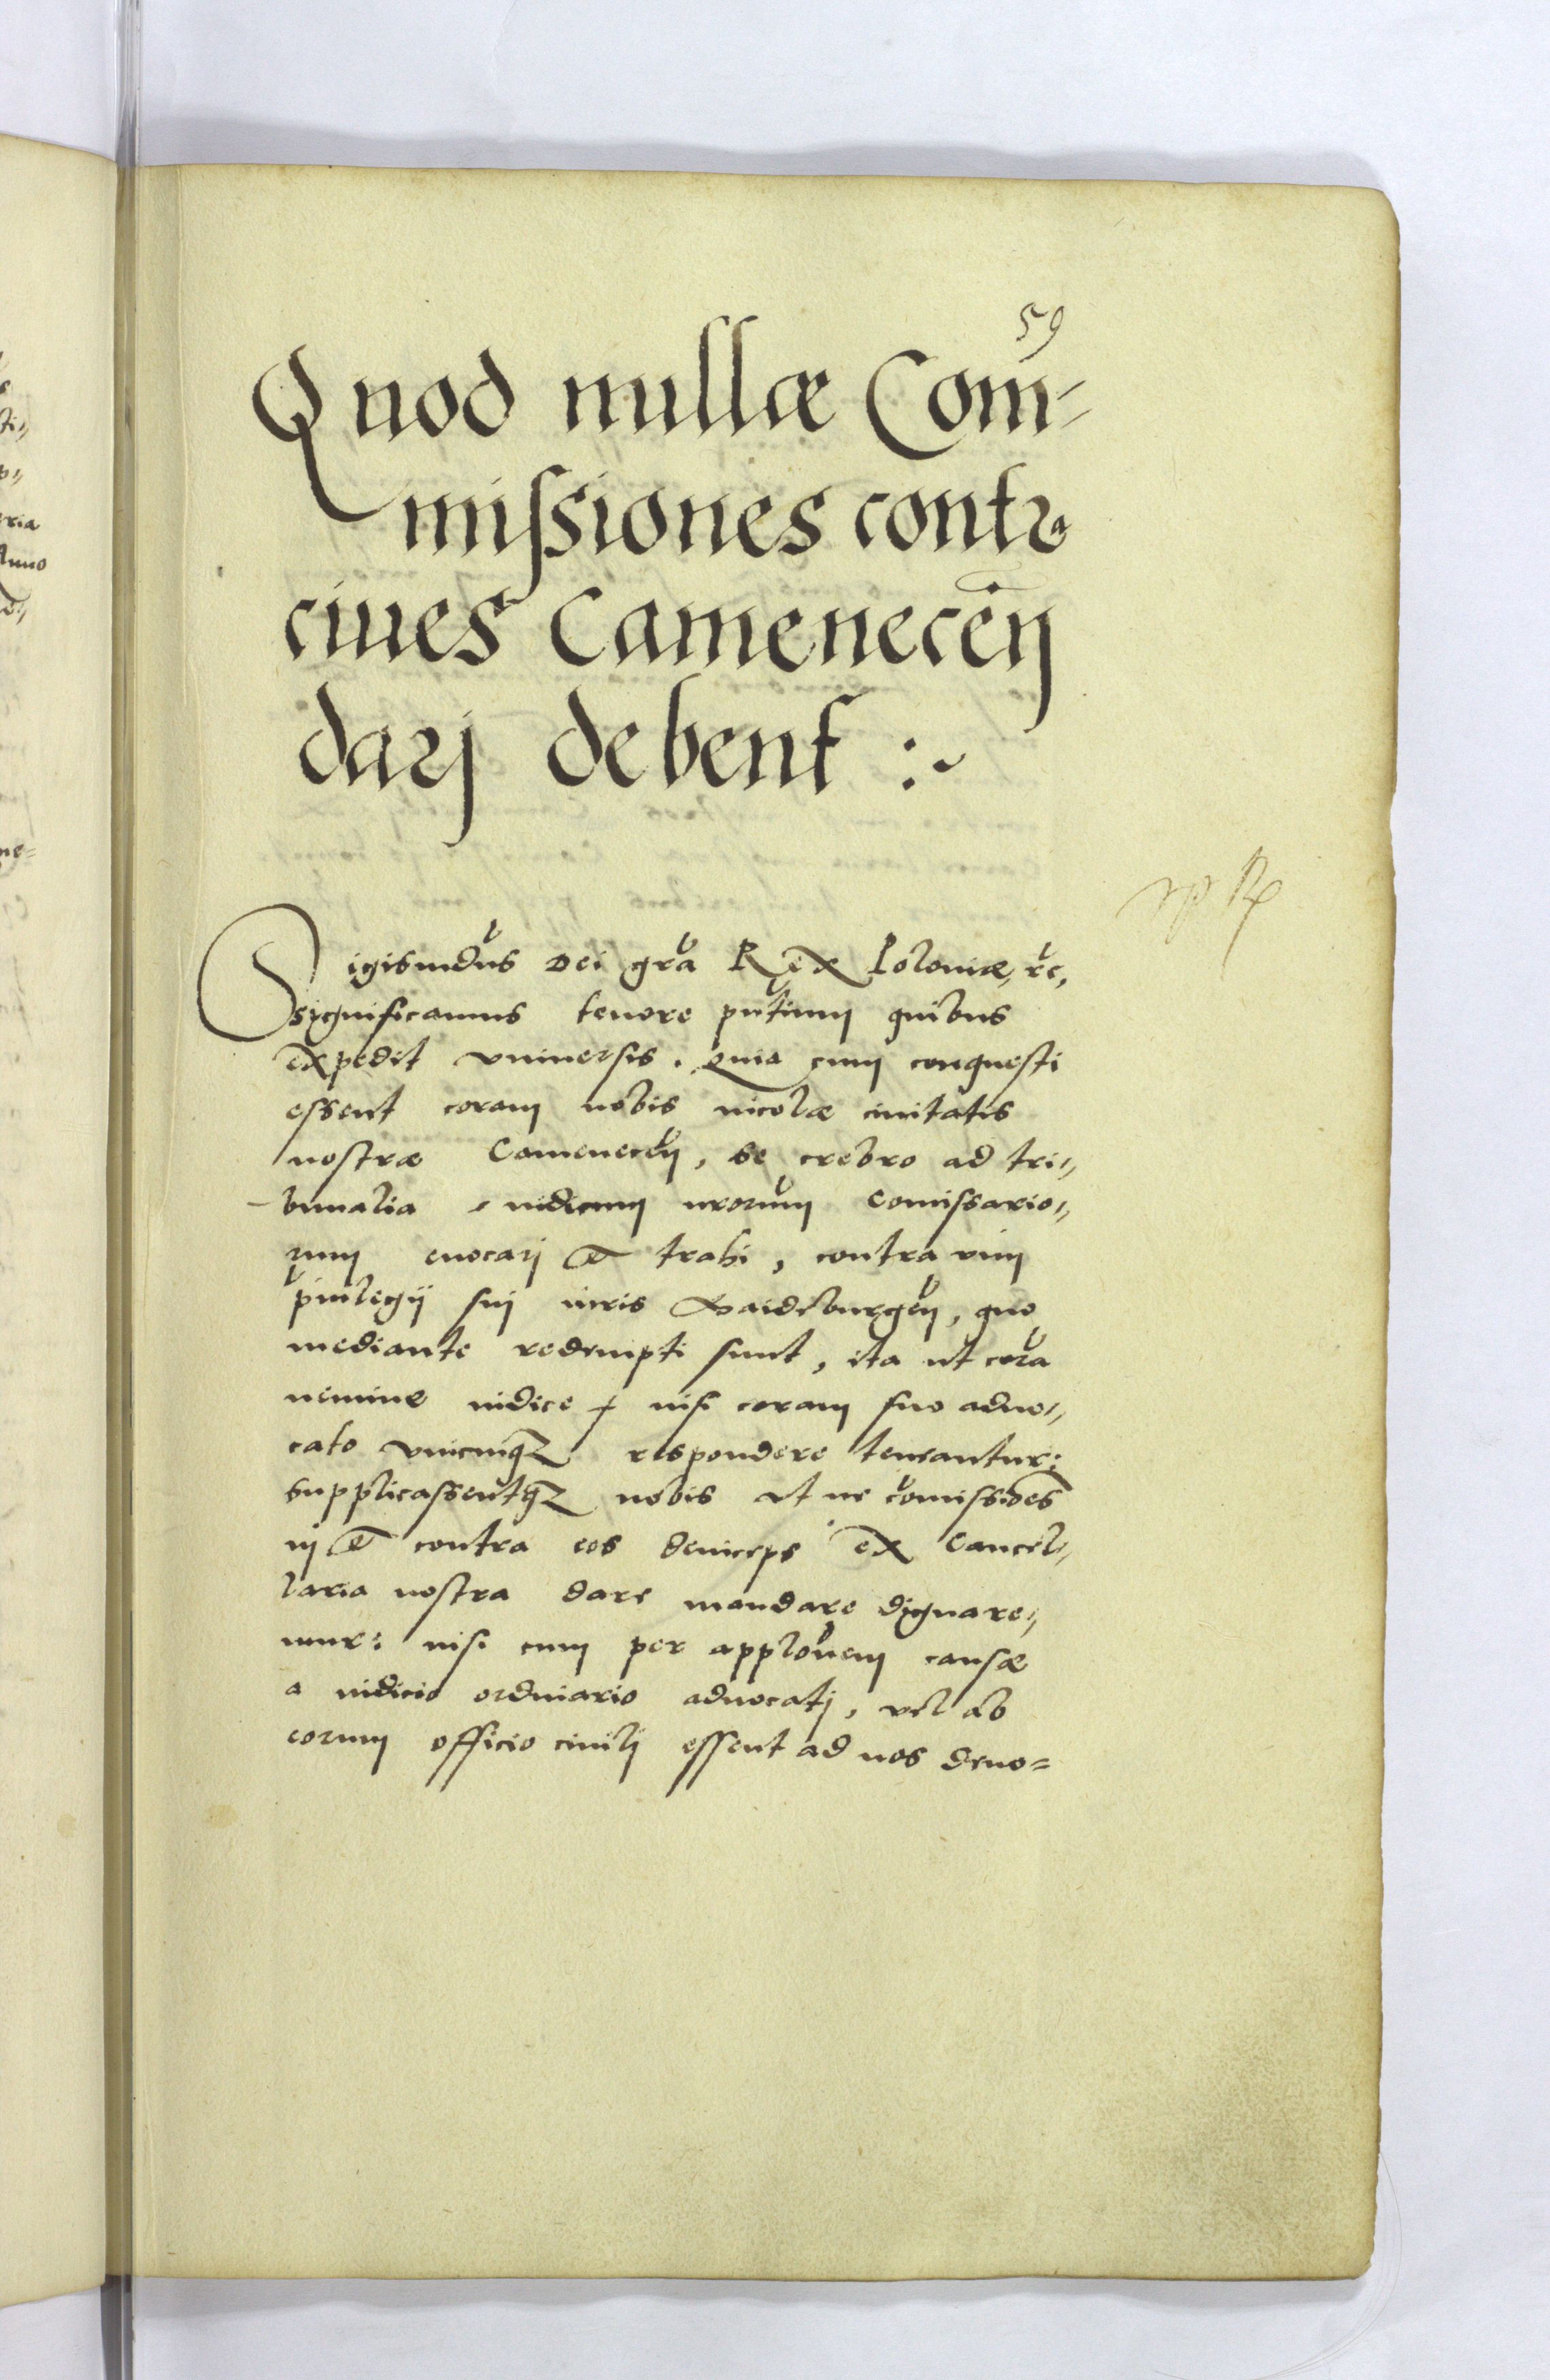 59
Quod nullæ Com̄-
missiones contra
ciues Camenecēn
darj debent :~
Sigismdūs Dei gr̄a Rex Poloniæ, etc,
significamus tenore pn̄tium quibus
expedit vniuersis. Quia cum conquesti
essent coram nobis incolæ ciuitatis
nostræ Camenecēn, se crebro ad tri„
bunalia iudicum nr̄orum Comissario„
rum euocarj et trahi, contra vim
pr̄iuilegij suj iuris Maideburgēn, quo
mediante redempti sunt, ita ut corā
nemine iudice nisi coram suo aduo„
cato vnicuiqz respondere teneantur:
supplicassentqz nobis ut ne com̄issiões
in et contra eos deinceps ex Cancel„
laria nostra dare mandare dignare„
mur: nisi cum per applōnem causæ
a iudicio ordinario aduocatj, vel ab
eorum officio ciuilj essent ad nos deuo=